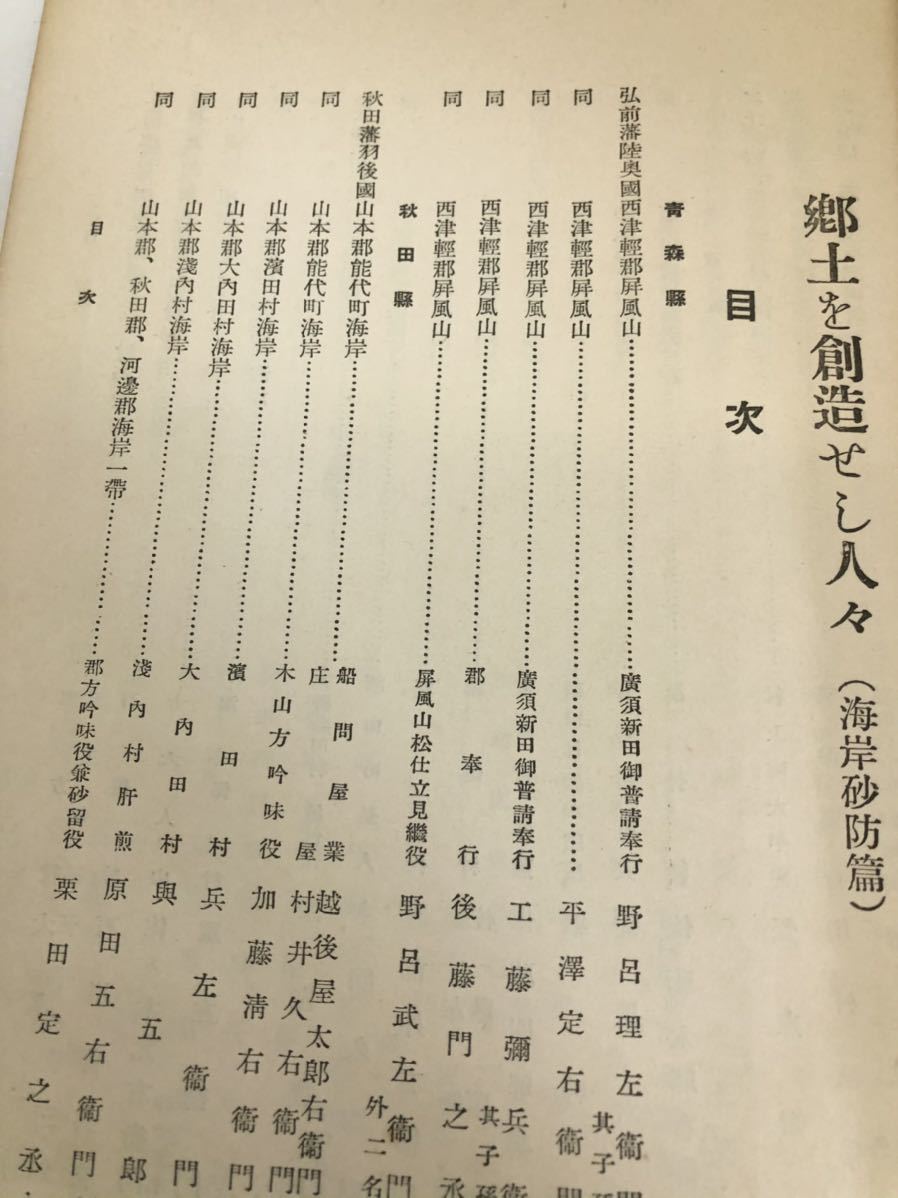 鄕土を創造せし人々（海岸砂防篇）
目次
靑森縣
弘前藩陸奧國西津輕郡屛風山……廣須新田御普請奉行 野呂理左衞門 其子孫
同 西津輕郡屛風山……平澤定右衞門
同 西津輕郡屛風山……廣須新田御普請奉行 工藤彌兵衞 其子孫
同 西津輕郡屛風山……郡奉行 後藤門之丞
同 西津輕郡屛風山……屛風山松仕立見繼役 野呂武左衞門 外二名
秋田縣
秋田藩羽後國山本郡能代町海岸……船問屋業 越後屋太郎右衞門
同 山本郡能代町海岸……庄屋 村井久右衞門
同 山本郡濱田村海岸……木山方吟味役 加藤淸右衞門
同 山本郡大內田村海岸……濱田村 兵左衞門
同 山本郡淺內村海岸……大內田村 與五郎
同 山本郡、秋田郡、河邊郡海岸一帶……淺內村肝煎 原田五右衞門
郡方吟味役兼砂留役 栗田定之丞
目次